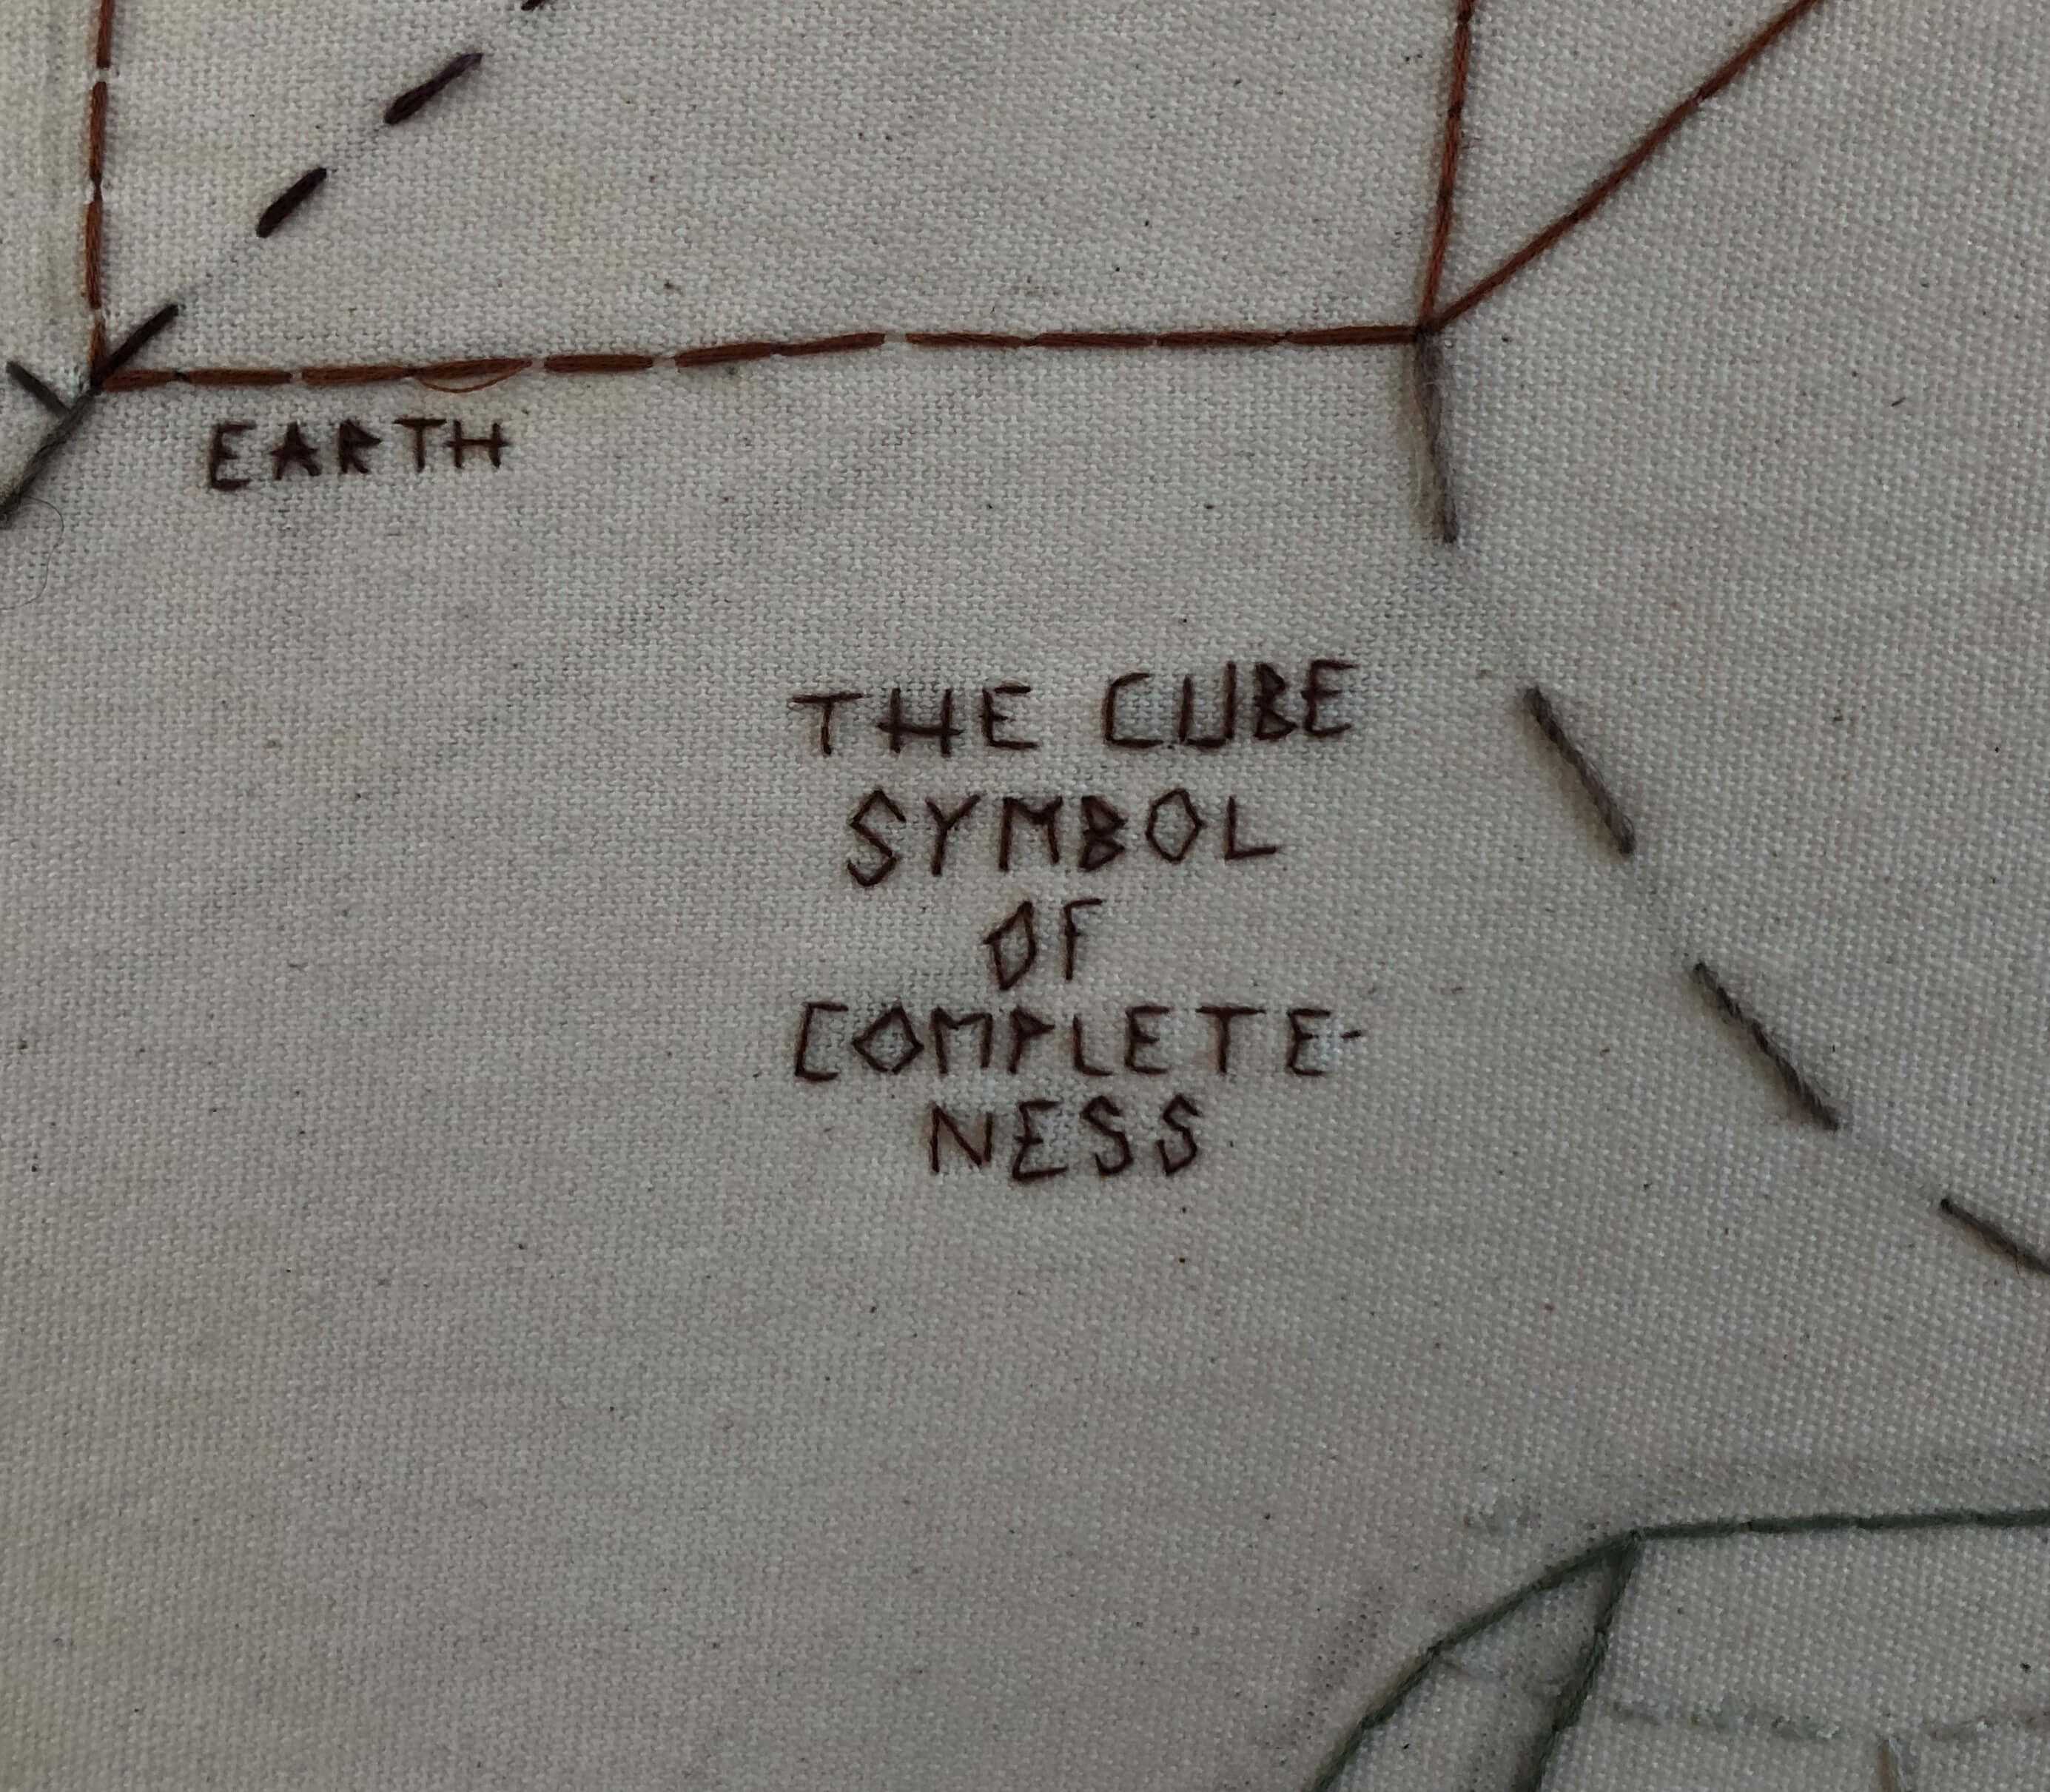 EARTH
THE CUBE
SYMBOL
OF
COMPLETE-
NESS